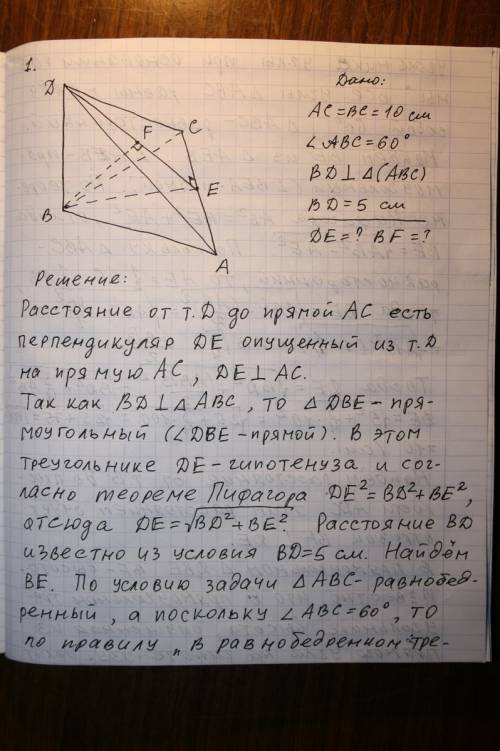 1.
D
F
C
E
B
A
Дано:
AC=BC=10 см
∠ABC=60°
BD⊥△(ABC)
BD=5 см
DE=? BF=?
Решение:
Расстояние от т.D до прямой AC есть
перпендикуляр DE опущенный из т.D
на прямую AC, DE⊥AC.
Так как BD⊥△ABC, то △DBE-пря-
моугольный (∠DBE-прямой). В этом
треугольнике DE-гипотенуза и сог-
ласно теореме Пифагора DE²=BD²+BE²,
отсюда DE=√BD²+BE². Расстояние BD
известно из условия BD=5 см. Найдём
BE. По условию задачи △ABC-равнобед-
ренный, а поскольку ∠ABC=60°, то
по правилу „В равнобедренном тре-